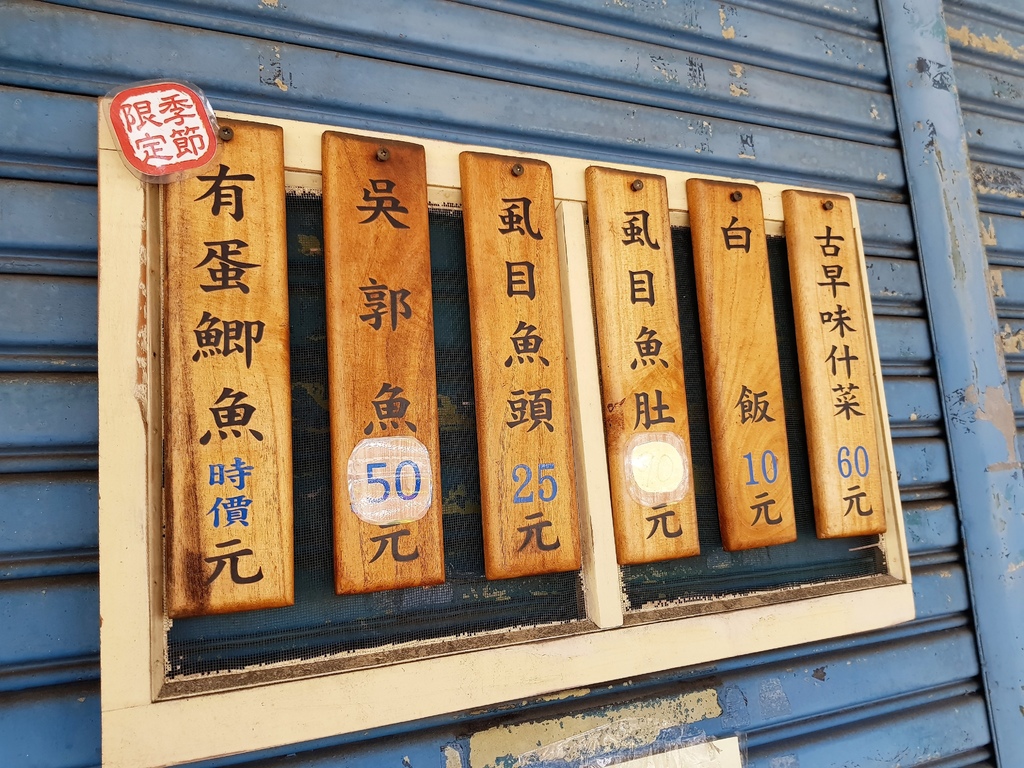 古早味什菜60元
白飯10元
虱目魚肚元
虱目魚頭25元
吳郭魚50元
季節
限定
有蛋鯽魚時價元